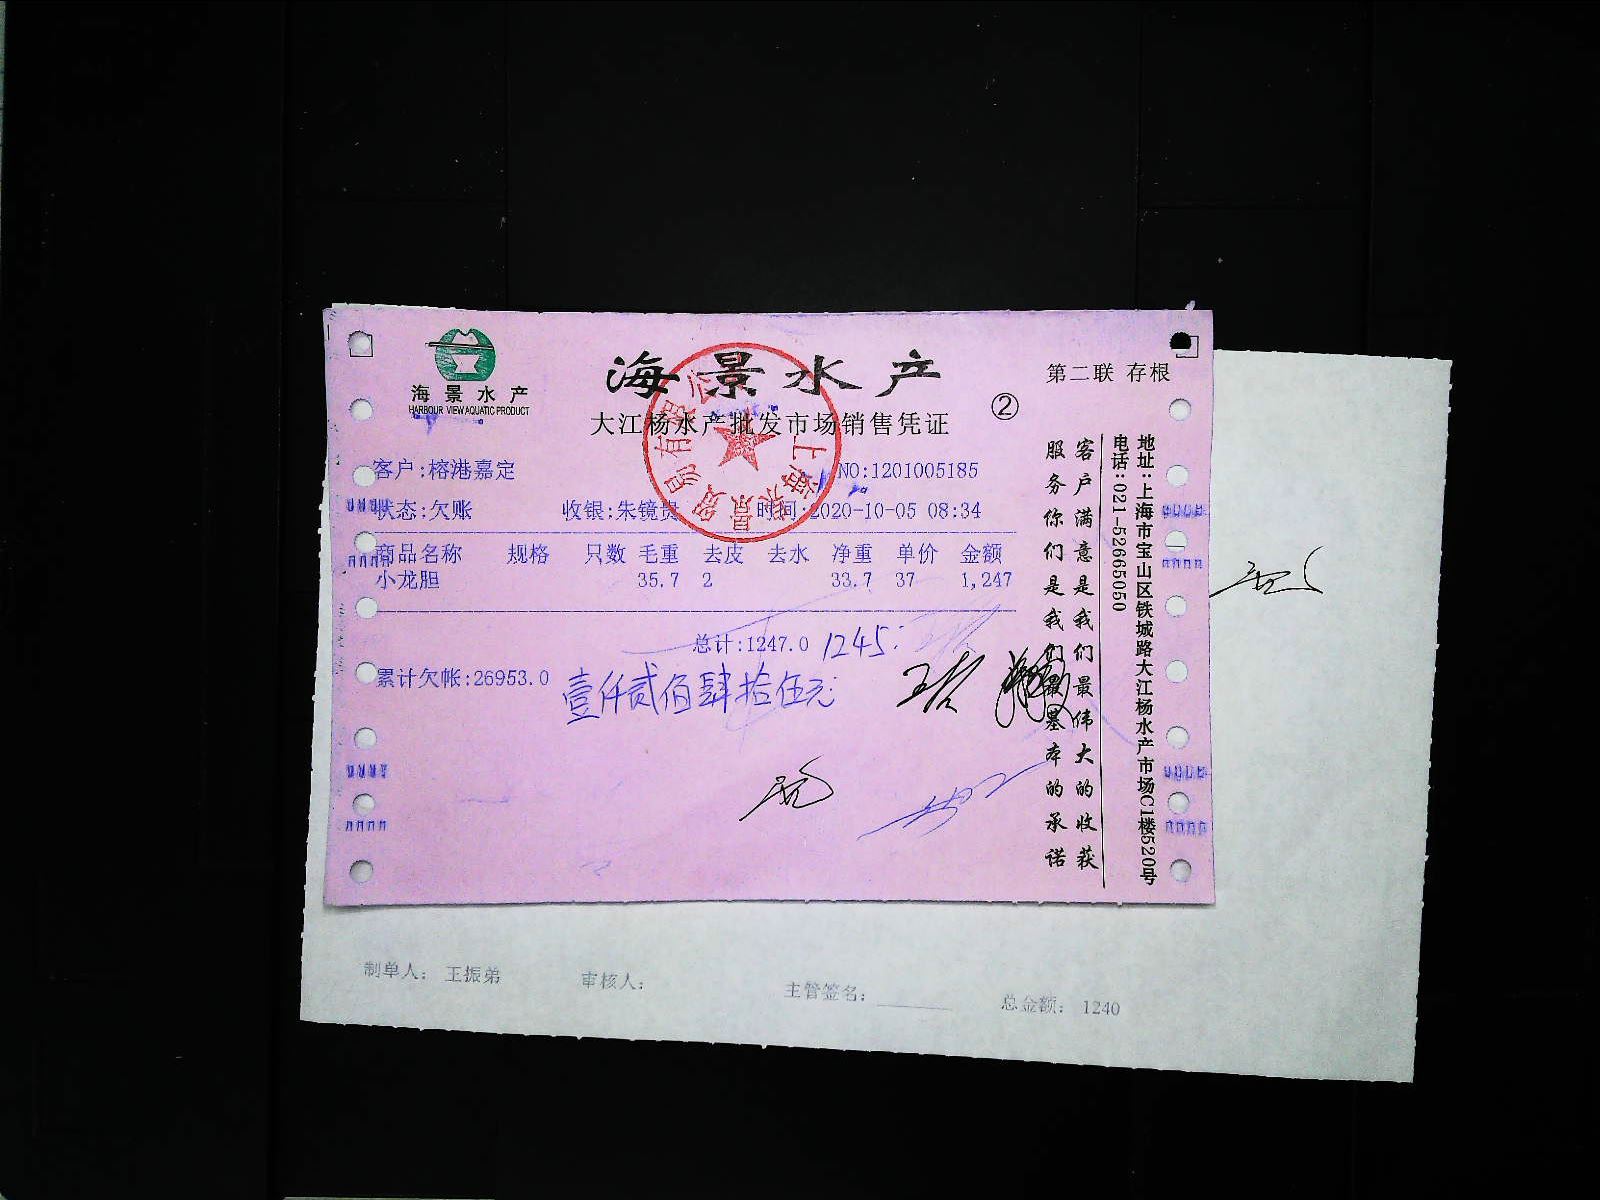 海景水产
HARBOUR VIEW AQUATIC PRODUCT
海景水产
大江杨水产批发市场销售凭证
②
第二联 存根
客户:榕港嘉定
NO:1201005185
状态:欠账 收银:朱镜贵 时间:2020-10-05 08:34
商品名称 规格 只数 毛重 去皮 去水 净重 单价 金额
小龙胆 35.7 2 33.7 37 1,247
总计:1247.0 1245
累计欠帐:26953.0
壹仟贰佰肆拾伍元
客户满意是我们最伟大的收获
服务你们是我们最基本的承诺
地址:上海市宝山区铁城路大江杨水产市场C1楼520号
电话:021-52665050
制单人: 王振弟 审核人: 主管签名: 总金额: 1240